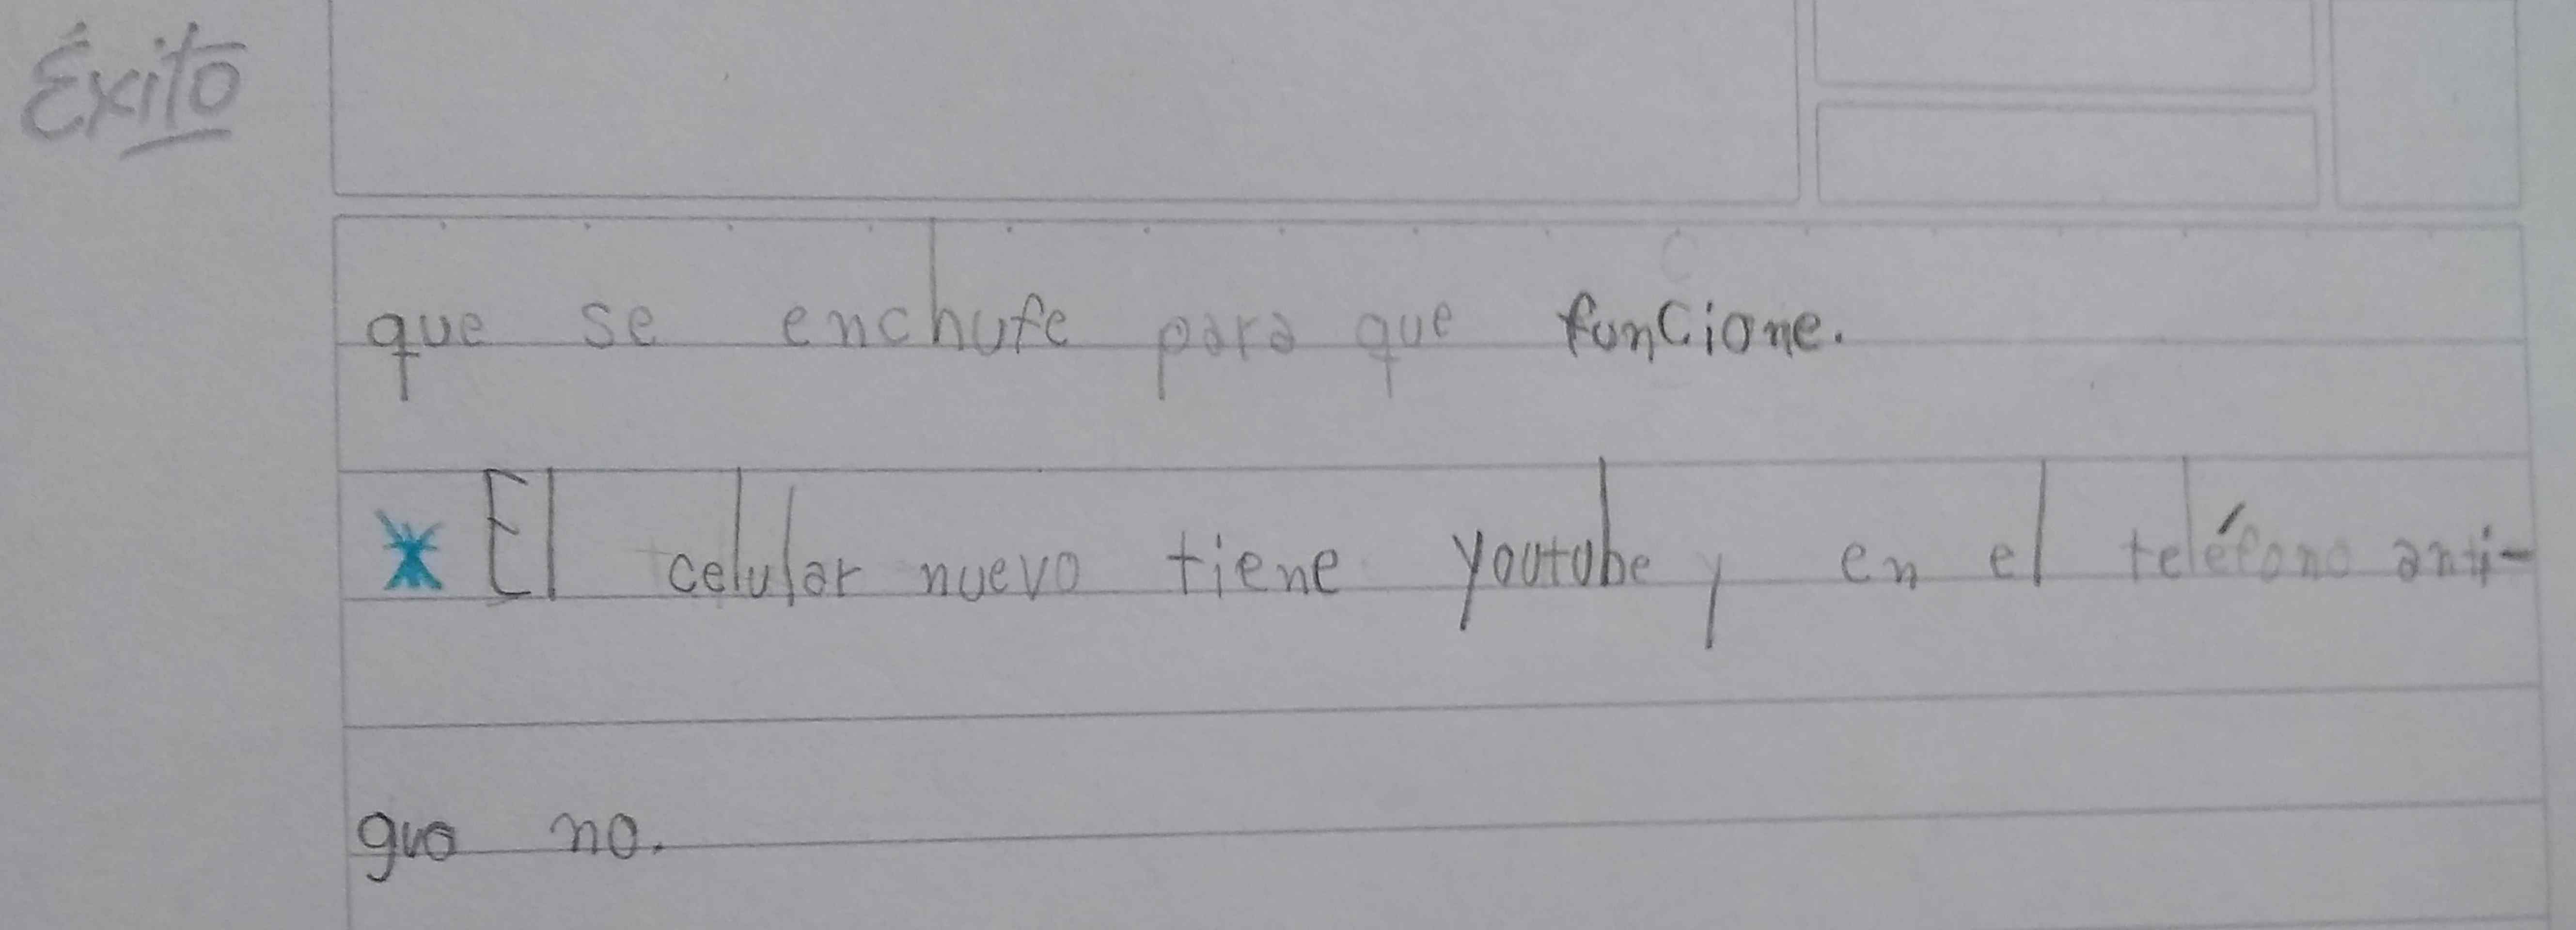 Éxito
que se enchufe para que funcione.
* El celular nuevo tiene youtube y en el teléfono anti-
guo no.